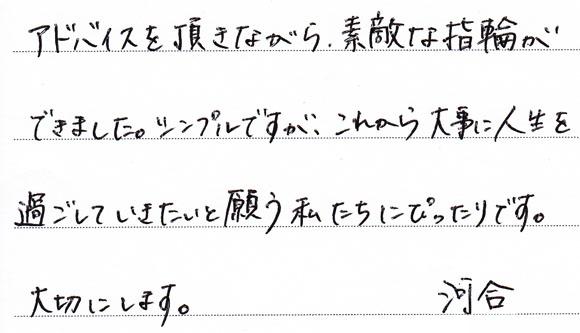 アドバイスを頂きながら、素敵な指輪が
できました。シンプルですが、これから大事に人生を
過ごしていきたいと願う私たちにぴったりです。
大切にします。 河合